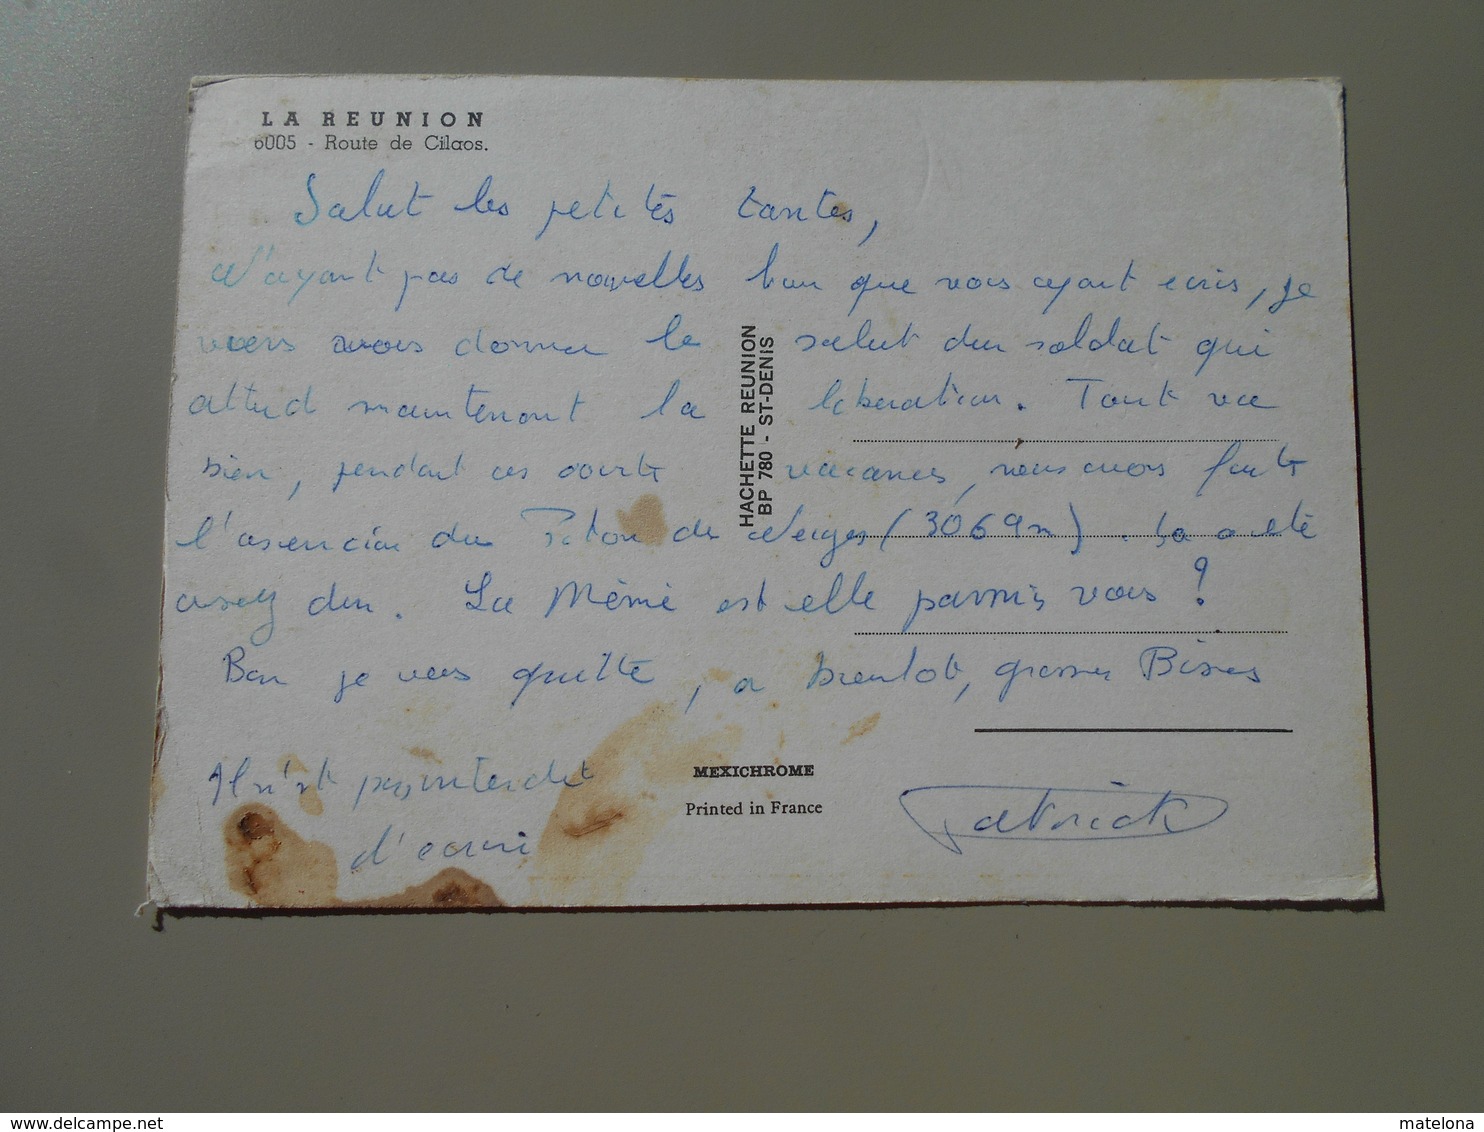 LA REUNION
6005 - Route de Cilaos.
Salut les petites tantes,
N'ayant pas de nouvelles bien que vous ayant ecris, je
viens vous donner le salut du soldat qui
attend maintenant la libération. Tout va
bien, pendant ces courte vacances, nous avons faite
l'asencion du Piton des Neiges (3069m). Sa a eté
assez dur. La Mémé est elle parmis vous ?
Bon je vous quitte, a bientot, grosses Bises
Il n'est pas interdit
d'ecrire
Patrick
HACHETTE REUNION
BP 780 - ST-DENIS
MEXICHROME
Printed in France
www.delcampe.net
matelona